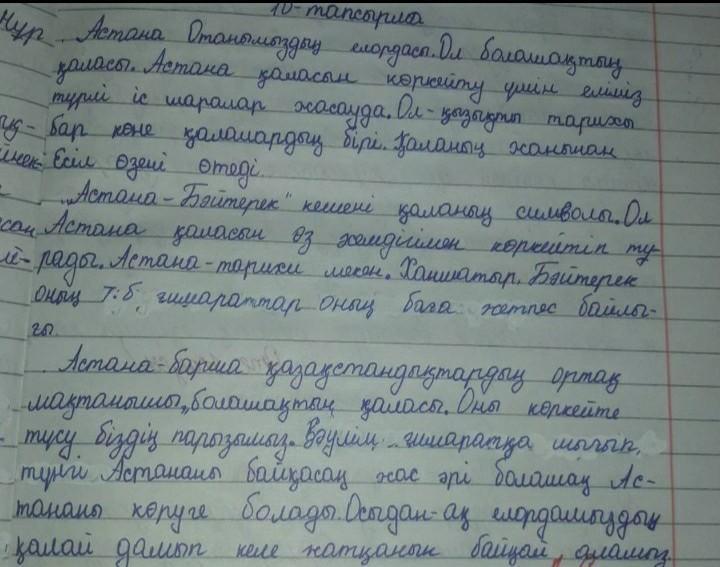 10-тапсырма
нұр Астана Отанымыздың елордасы. Ол болашақтың
қаласы. Астана қаласын көркейту үшін еліміз
түрлі іс шаралар жасауда. Ол-қызықты тарихы
бар көне қалалардың бірі. Қаланың жанынан
Есіл өзені өтеді.
„Астана-Бәйтерек" кешені қаланың символы. Ол
Астана қаласын өз көмдігімен көркейтіп ту-
рады. Астана-тарихи мекен. Ханшатыр, Бәйтерек
оның т.б. ғимараттар оның баға жетпес байлы-
ғы.
Астана-барша қазақстандықтардың ортақ
мақтанышы, болашақтың қаласы. Оны көркейте
түсу біздің парызымыз. Зәулім ғимаратқа шығып,
түнгі Астананы байқасаң жас әрі болашақ Ас-
тананы көруге болады. Осыдан-ақ елордамыздың
қалай дамып келе жатқанын байқай аламыз.